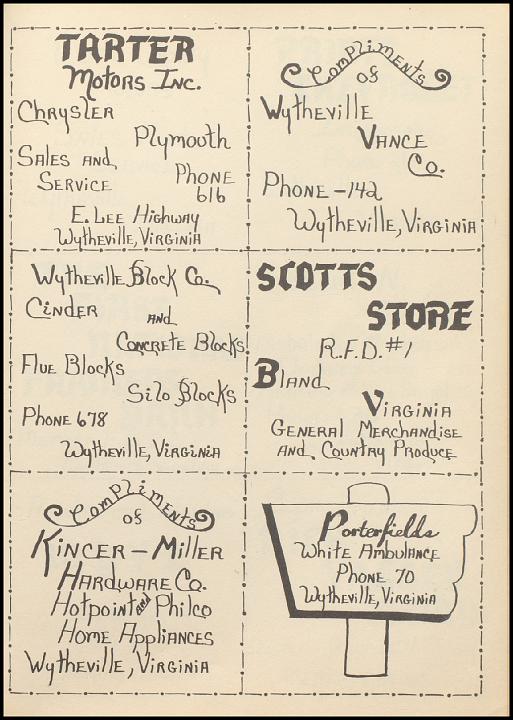 TARTER
Motors Inc.
Chrysler
Plymouth
Sales and
Service
Phone
616
E. Lee Highway
Wytheville, Virginia
Compliments
of
Wytheville
Vance
Co.
Phone - 142
Wytheville, Virginia
Wytheville Block Co.
Cinder
and
Concrete Blocks
Flue Blocks
Silo Blocks
Phone 678
Wytheville, Virginia
SCOTTS
STORE
R.F.D. #1
Bland
Virginia
General Merchandise
and Country Produce
Compliments
of
Kincer - Miller
Hardware Co.
Hotpoint and Philco
Home Appliances
Wytheville, Virginia
Porterfields
White Ambulance
Phone 70
Wytheville, Virginia